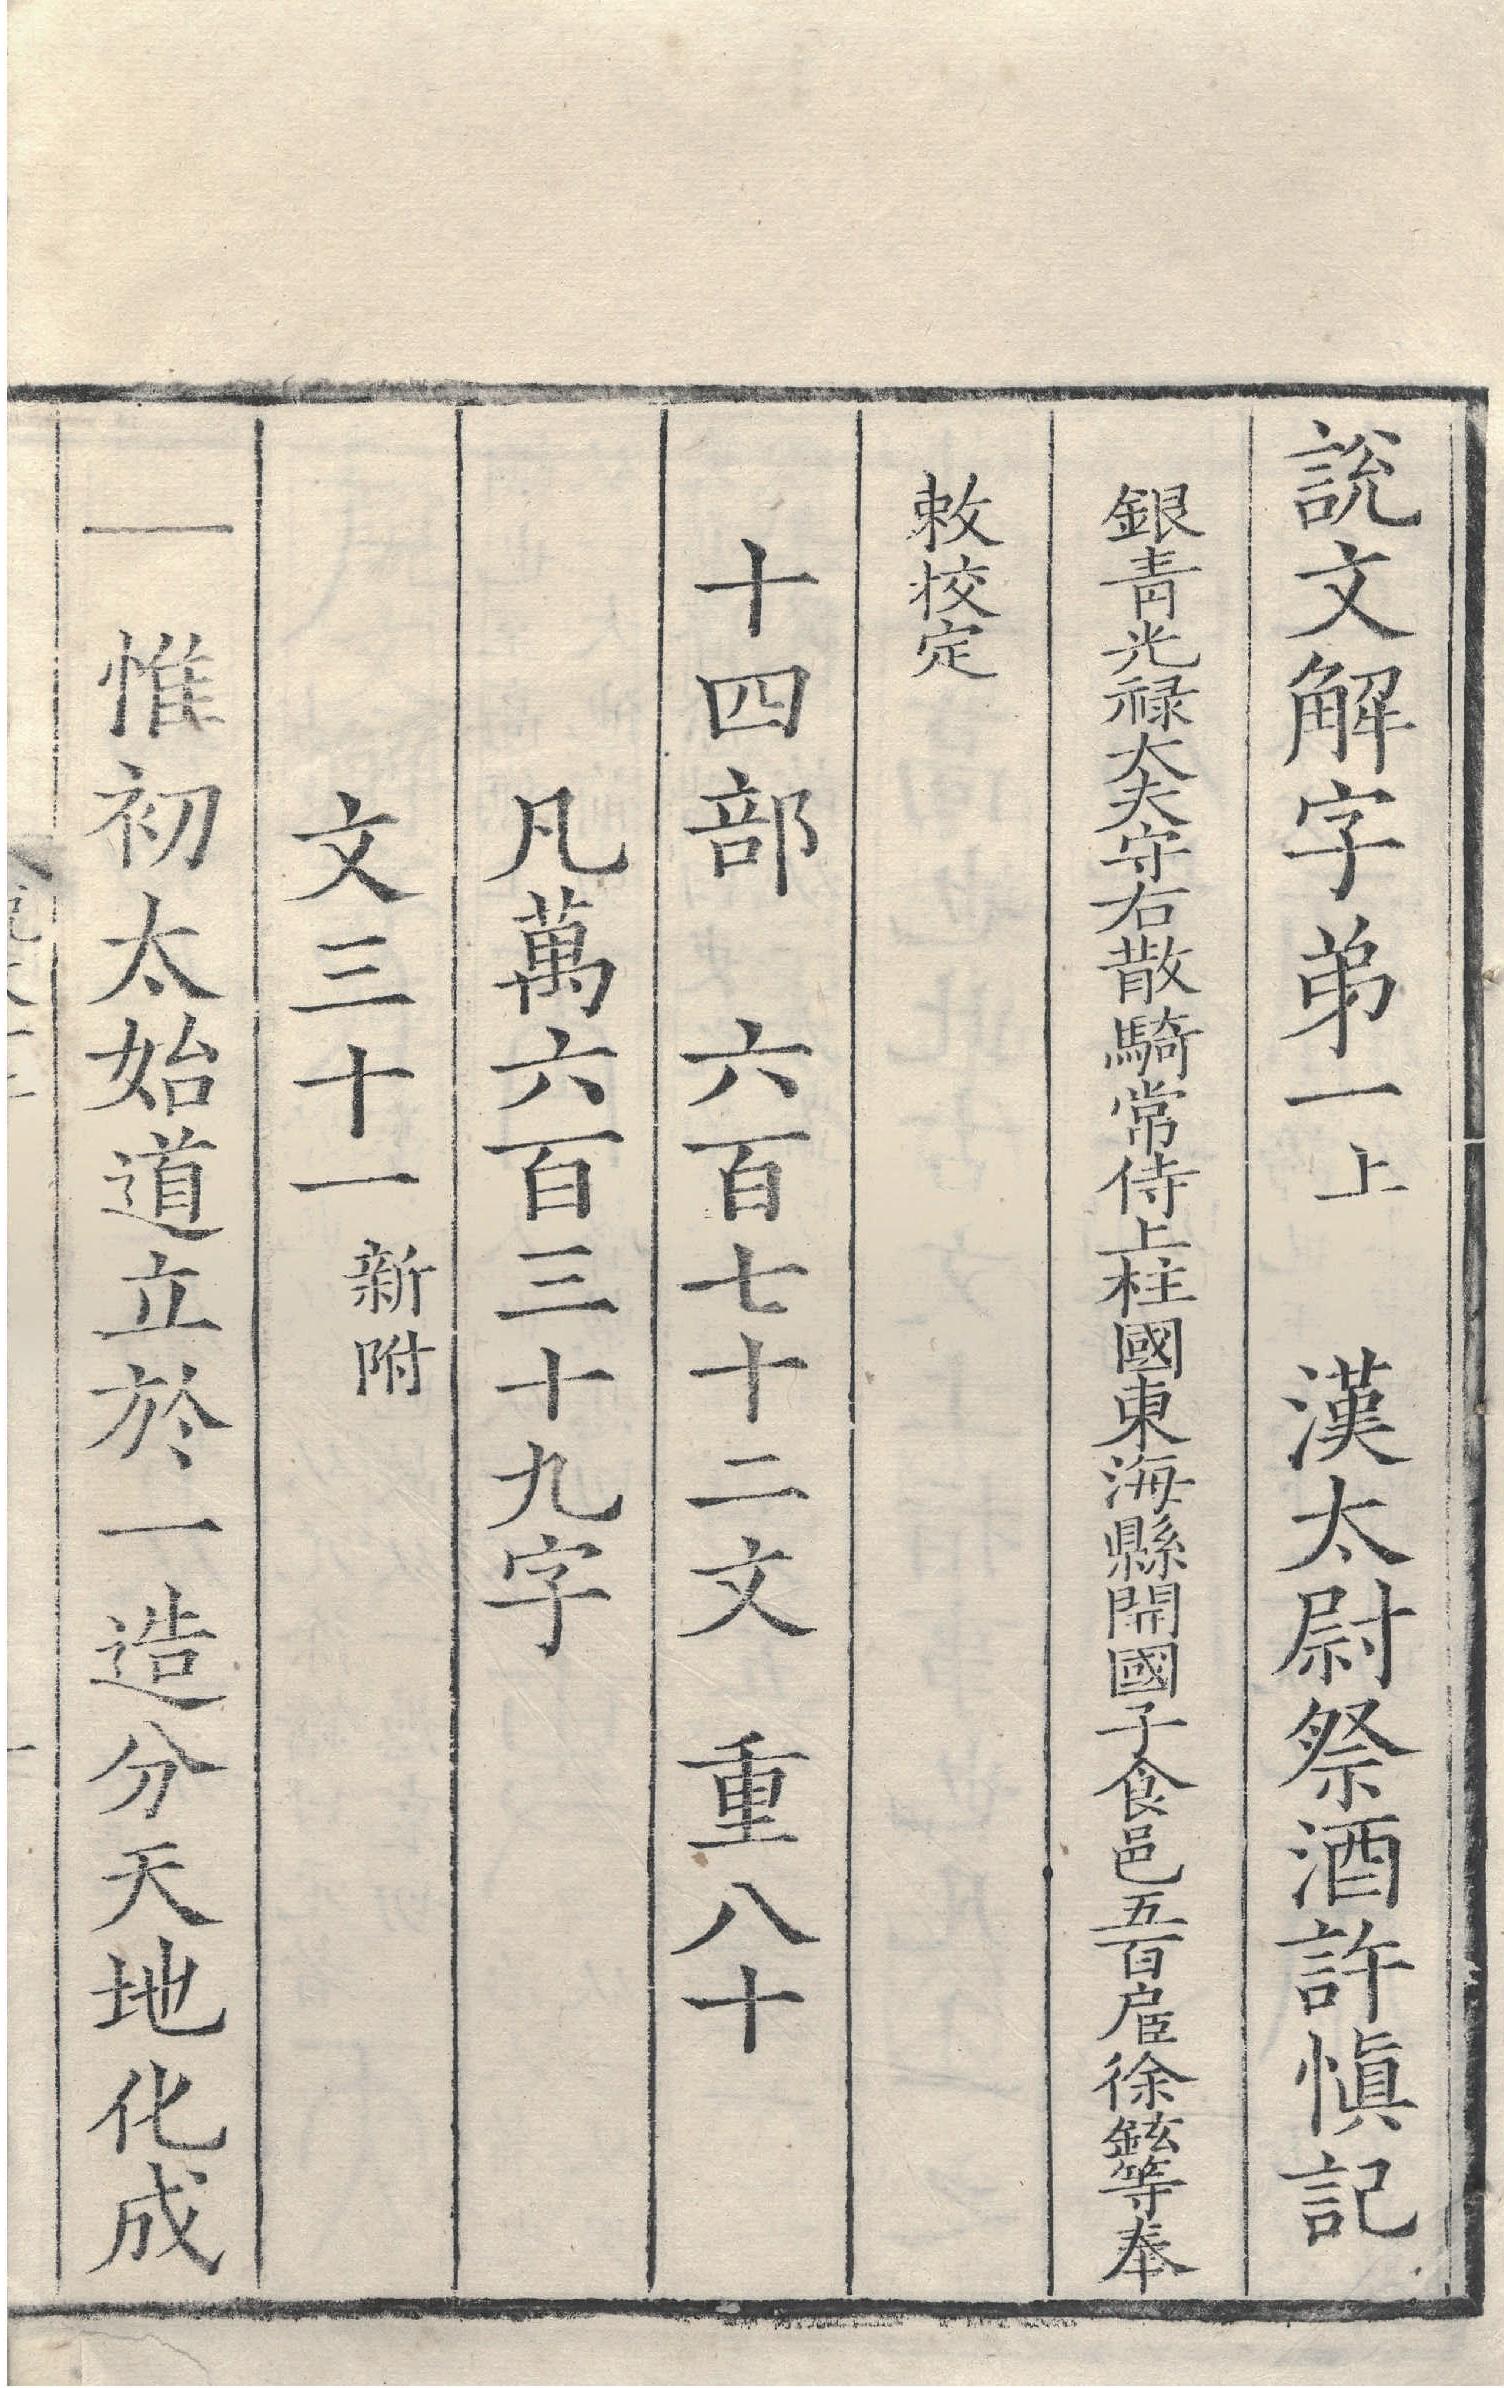 說文解字弟一上 漢太尉祭酒許慎記
銀青光祿大夫守右散騎常侍上柱國東海縣開國子食邑五百戶臣徐鉉等奉
敕校定
十四部 六百七十二文 重八十
凡萬六百三十九字
文三十一新附
一 惟初太始道立於一造分天地化成